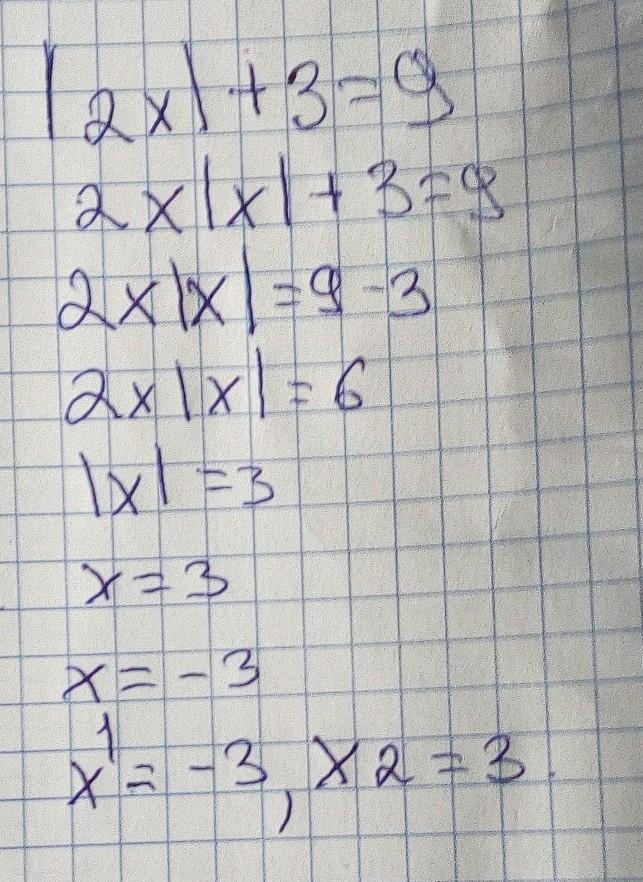 |2x|+3=9
2x|x|+3=9
2x|x|=9-3
2x|x|=6
|x|=3
x=3
x=-3
x1=-3, x2=3